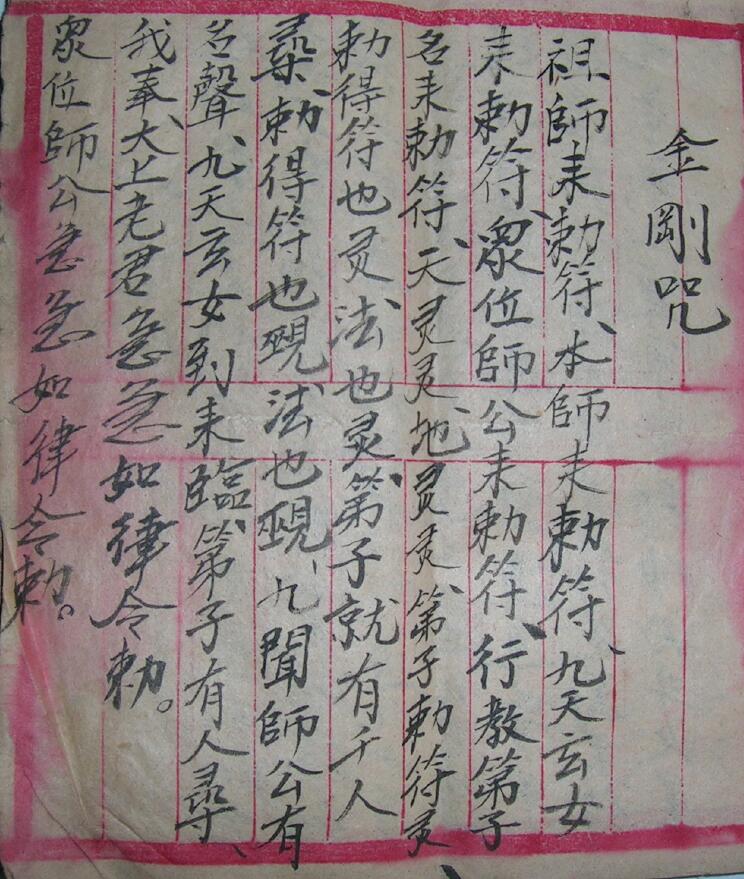 金剛咒
祖師来勅符、本師来勅符、九天玄女
来勅符、眾位師公来勅符、行教第子
名来勅符、天灵灵地、灵灵、第子勅符灵
勅得符也灵法也灵、第子就有千人
尋、勅得符也法也、九聞師公有
名聲、九天玄女到来臨、第子有人尋、
我奉大上老君急急如律令勅。
眾位師公急急如律令勅。